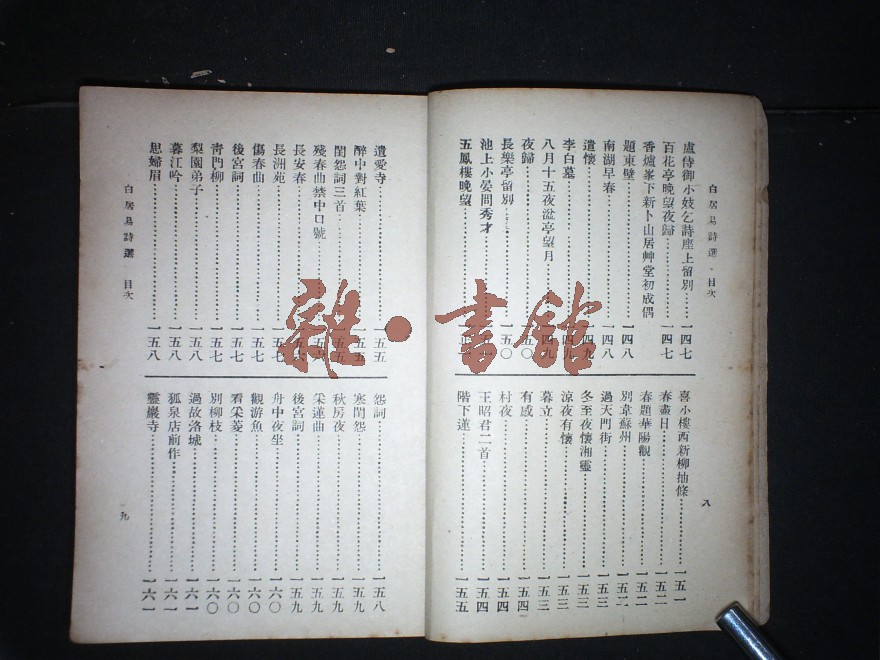 白居易詩選 目次
盧侍御小妓乞詩座上留別 一四七
百花亭晚望夜歸 一四七
香爐峯下新卜山居艸堂初成偶
題東壁 一四八
南湖早春 一四八
遣懷 一四九
李白墓 一四九
八月十五夜湓亭望月 一四九
夜歸
長樂亭留別 一五〇
池上小宴問秀才
五鳳樓晚望
喜小樓西新柳抽條 一五一
春盡日 一五二
春題華陽觀 一五二
別韋蘇州 一五二
過天門街 一五三
冬至夜懷湘靈 一五三
涼夜有懷 一五三
暮立 一五三
有感 一五四
村夜 一五四
王昭君二首 一五四
階下蓮 一五五
八
遺愛寺 一五五
醉中對紅葉 一五五
閨怨詞三首 一五五
殘春曲禁中口號 一五六
長安春 一五六
長洲苑 一五七
傷春曲 一五七
後宮詞 一五七
靑門柳 一五七
梨園弟子 一五八
暮江吟 一五八
思婦眉 一五八
怨詞 一五八
寒閨怨 一五九
秋房夜 一五九
采蓮曲 一五九
後宮詞 一五九
舟中夜坐 一六〇
觀游魚 一六〇
看采菱 一六〇
別柳枝 一六〇
過故洛城 一六一
狐泉店前作 一六一
靈巖寺 一六一
白居易詩選 目次
九
雜·書館